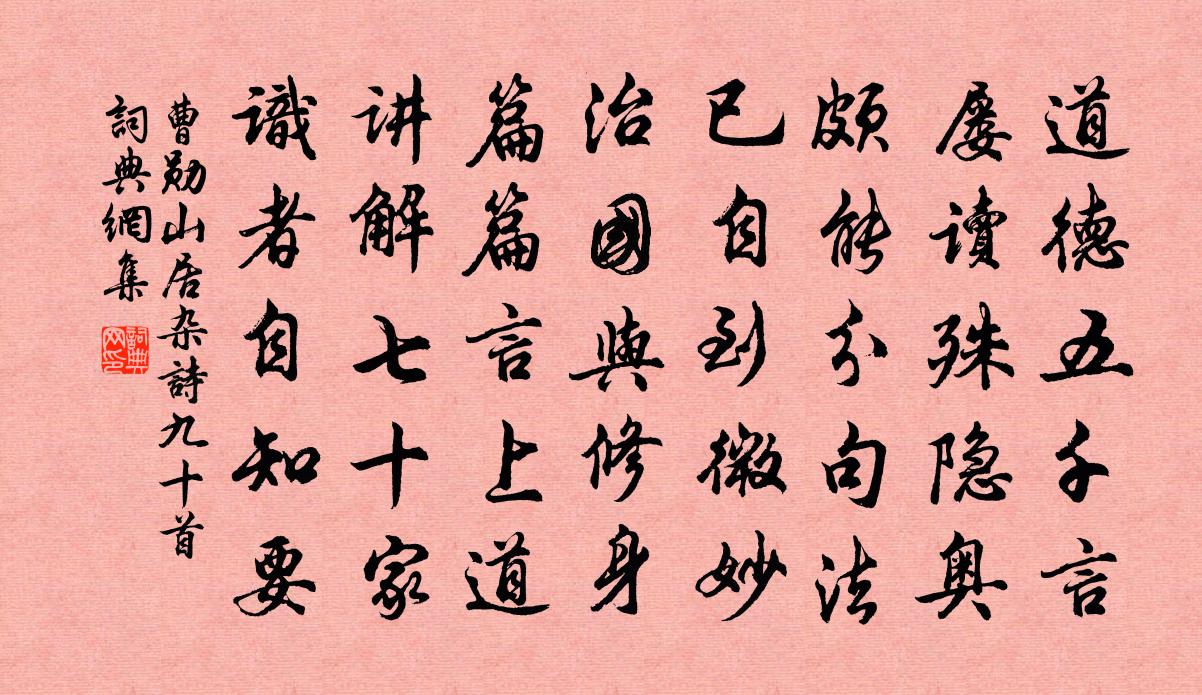 道德五千言
屡讀殊隐奥
頗能分句法
已自到微妙
治國與修身
篇篇言上道
讲解七十家
識者自知要
曹勋山居杂詩九十首
詞典網集
詞典网印